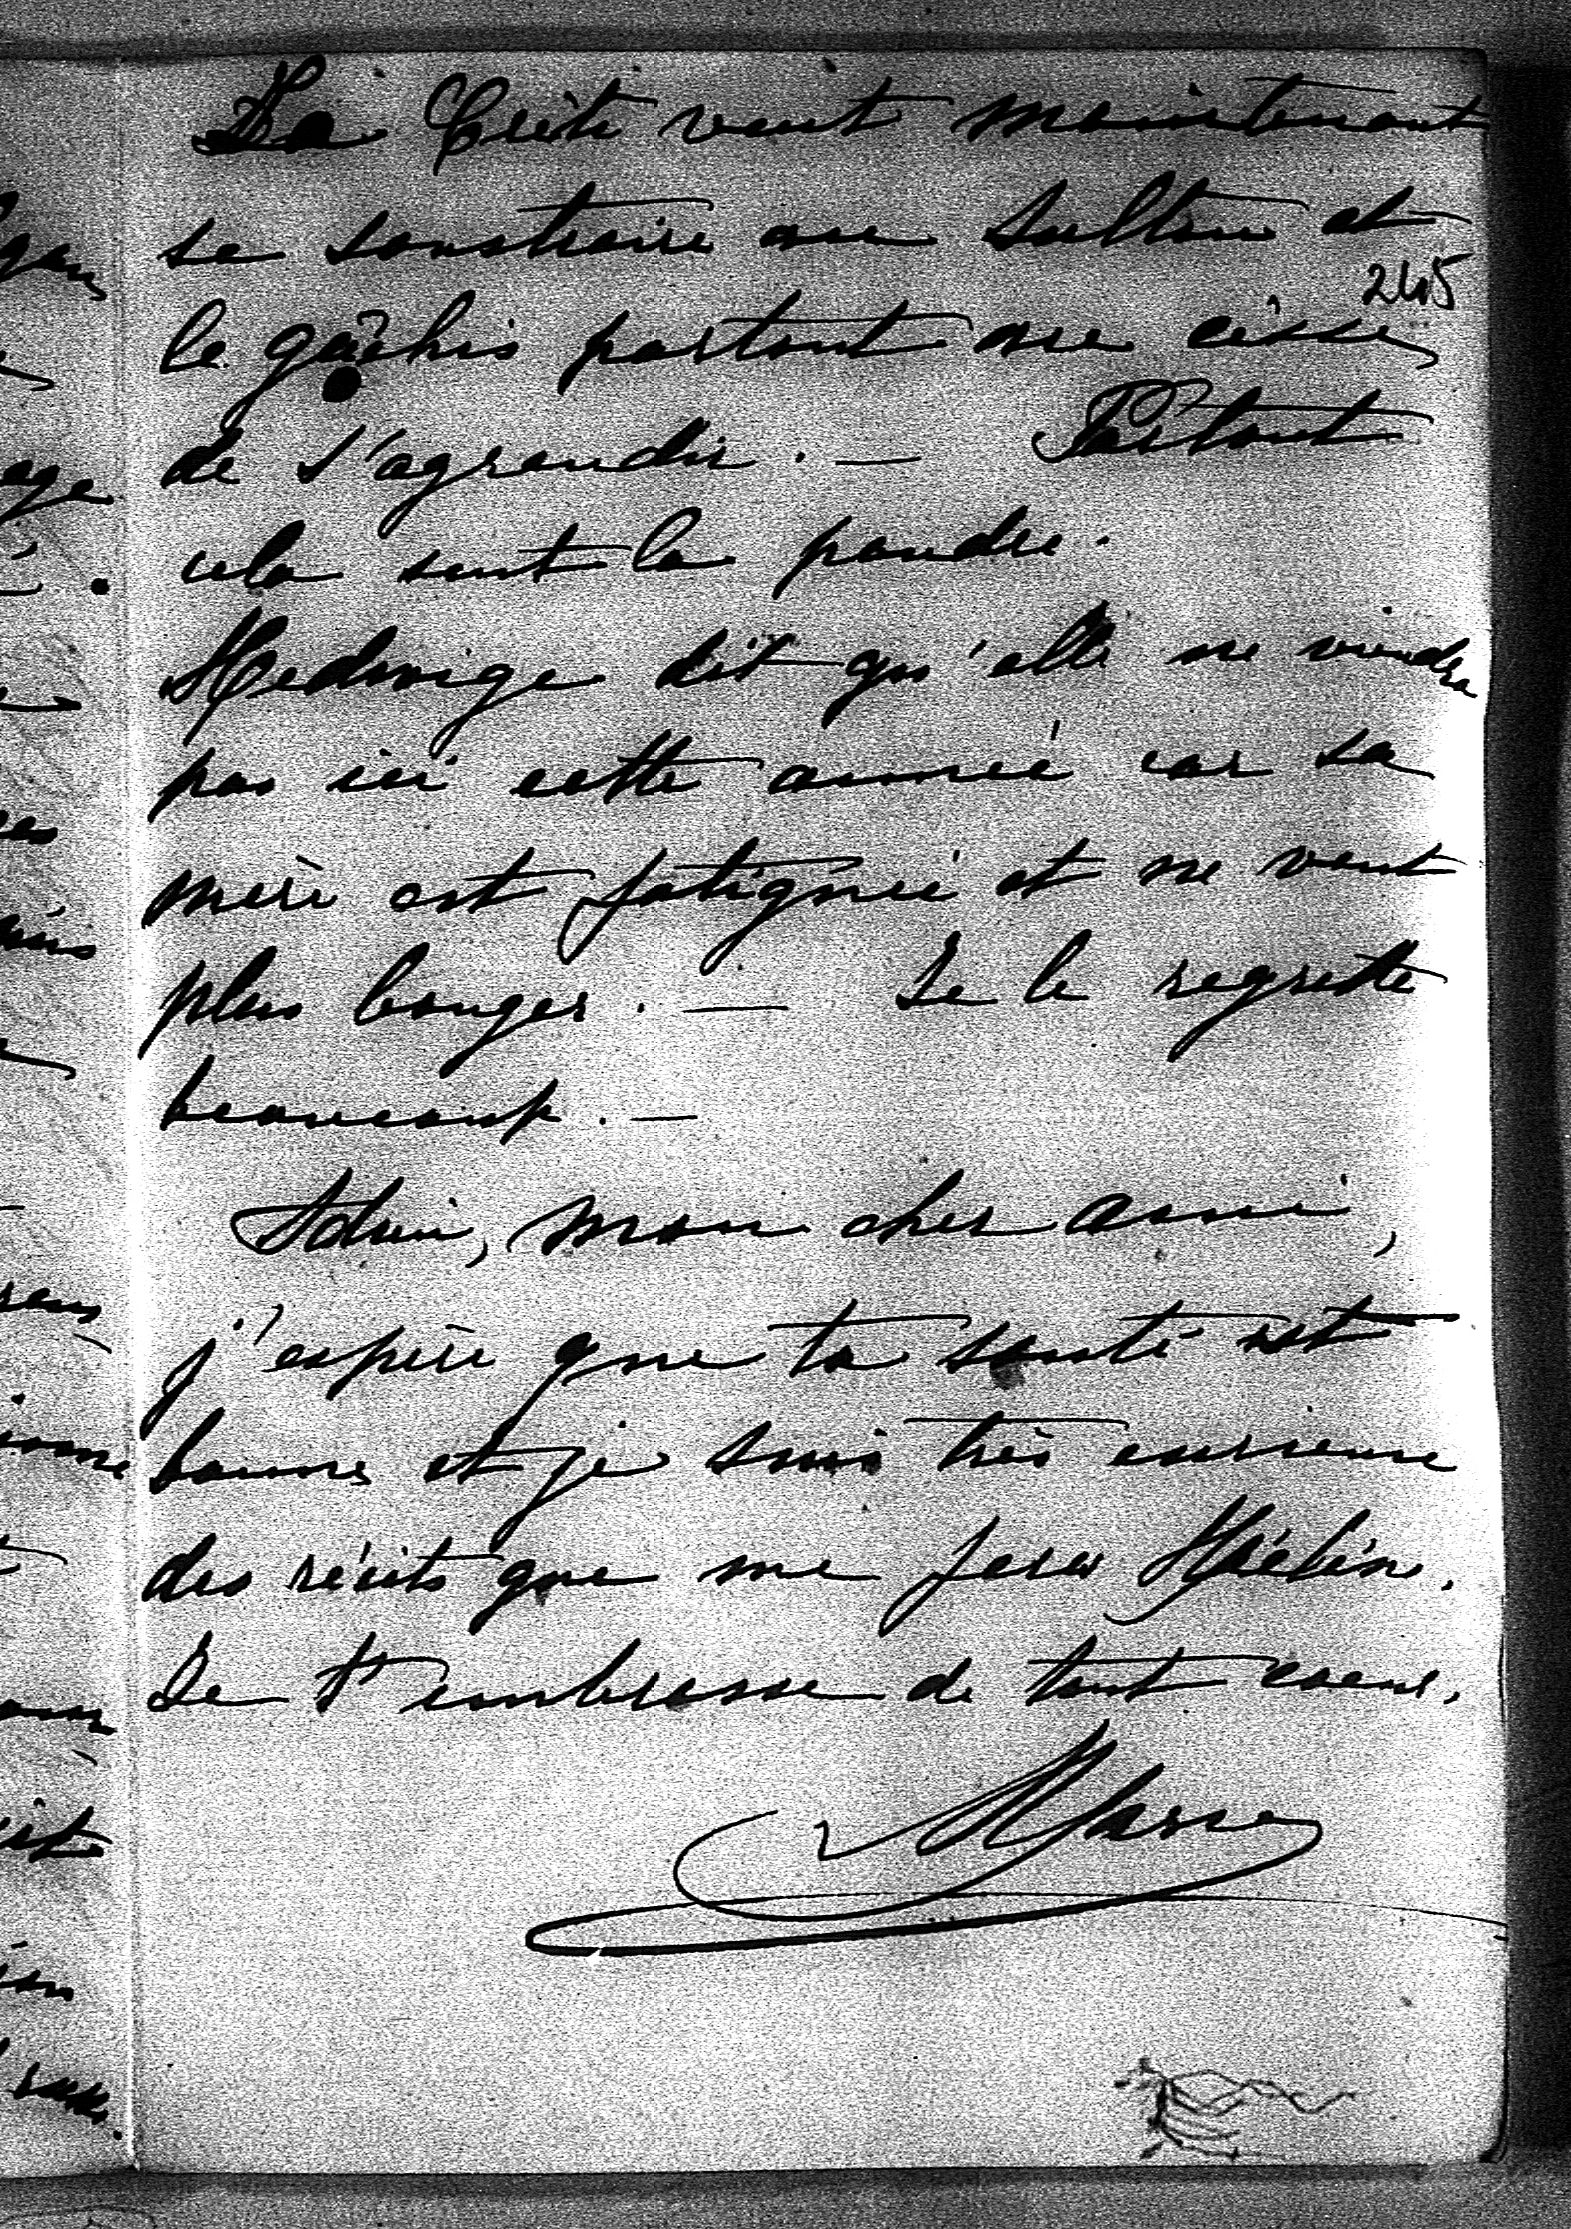 La Crète veut maintenant
se soustraire au sultan et
245
le gâchis partout ne cesse
de s'agrandir. — Partout
cela sent la poudre.
Hedwige dit qu'elle ne viendra
pas ici cette année car sa
mère est fatiguée et ne veut
plus bouger. — Je le regrette
beaucoup. —
Adieu, mon cher ami,
j'espère que ta santé est
bonne et je suis très curieuse
des récits que me fera Hélène.
Je t'embrasse de tout coeur.